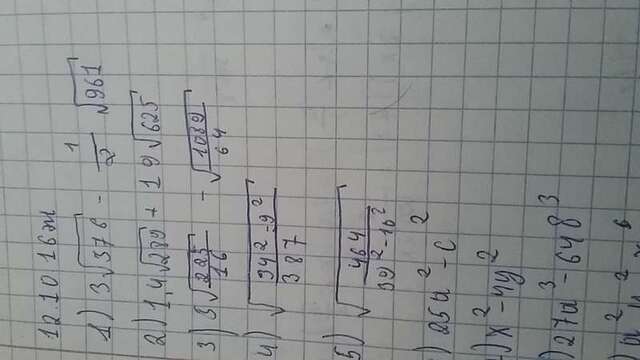 12.10.16 ж
1) 3√376 - 1/2 √961
2) 1,4√289 + 19√625
3) 3√225/16 - √1089/64
4) √34² - 9²/387
5) √464/39² - 16²
) 25a² - c²
) x² - 4y²
) 27a³ - 648³